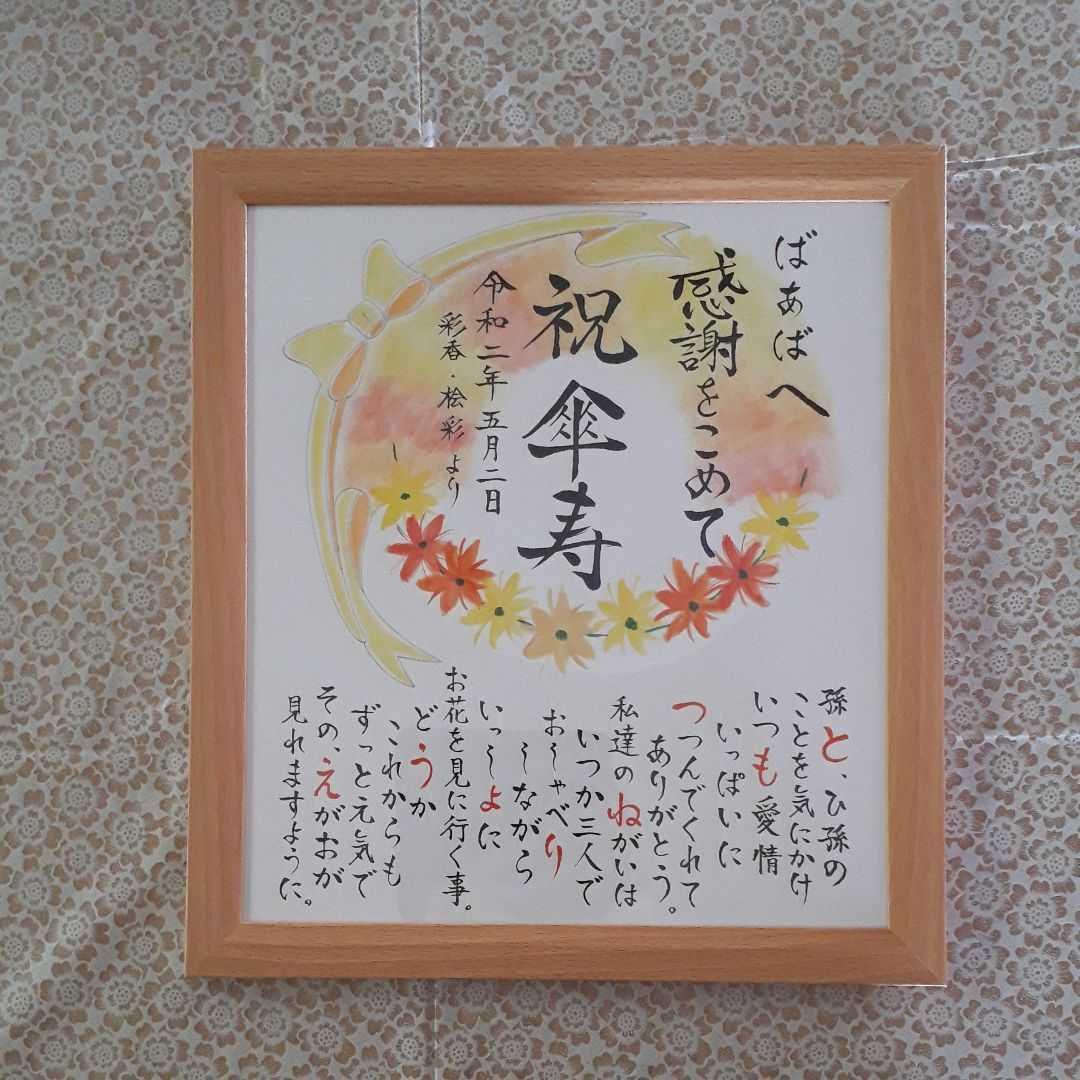 ばぁばへ
感謝をこめて
祝傘寿
令和二年五月二日
彩香・桧彩より
孫と、ひ孫の
ことを気にかけ
いつも愛情
いっぱいに
つつんでくれて
ありがとう。
私達のねがいは
いつか三人で
お〜ゃべり
〜ながら
いっ〜よに
お花を見に行く事。
どうか
これからも
ずっと元気で
その、えがおが
見れますように。